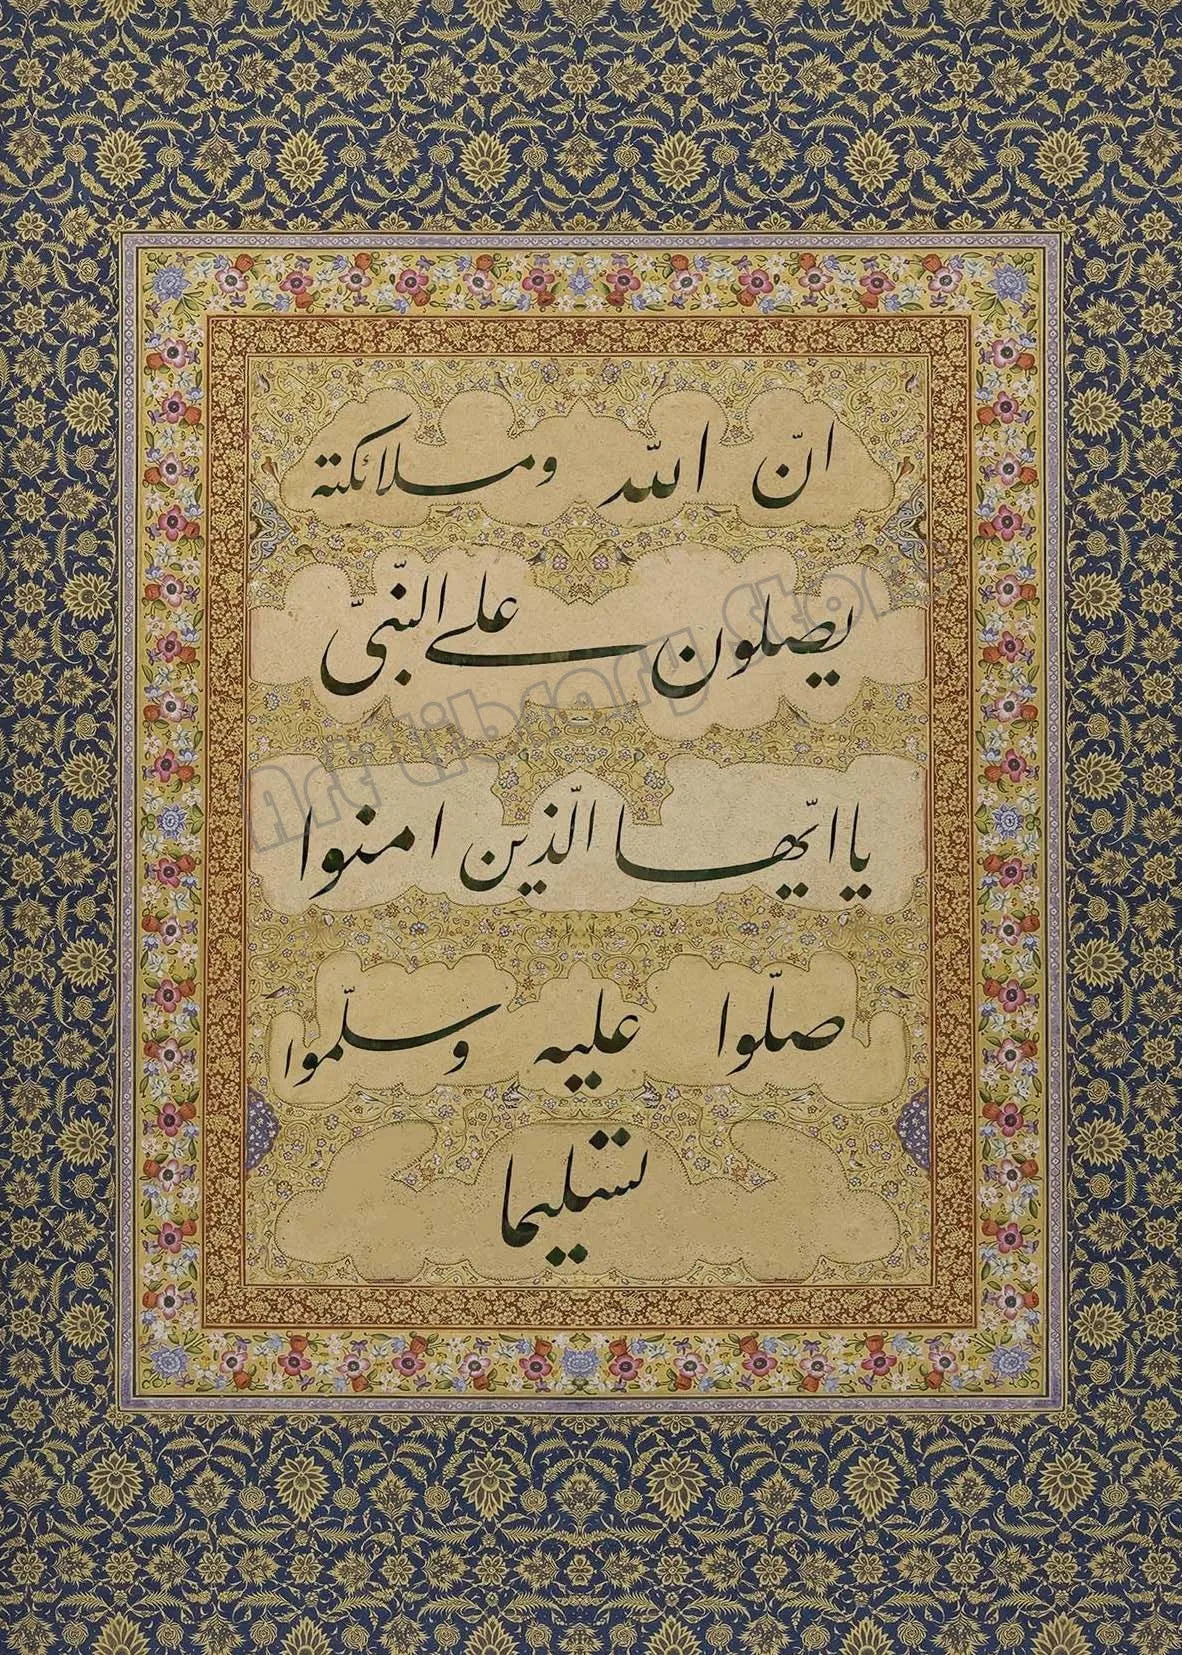 انّ اللّه وملائكته
يصلون على النبّيّ
يا ايّها الّذين امنوا
صلّوا عليه وسلّموا
تسليما
Art Library Store